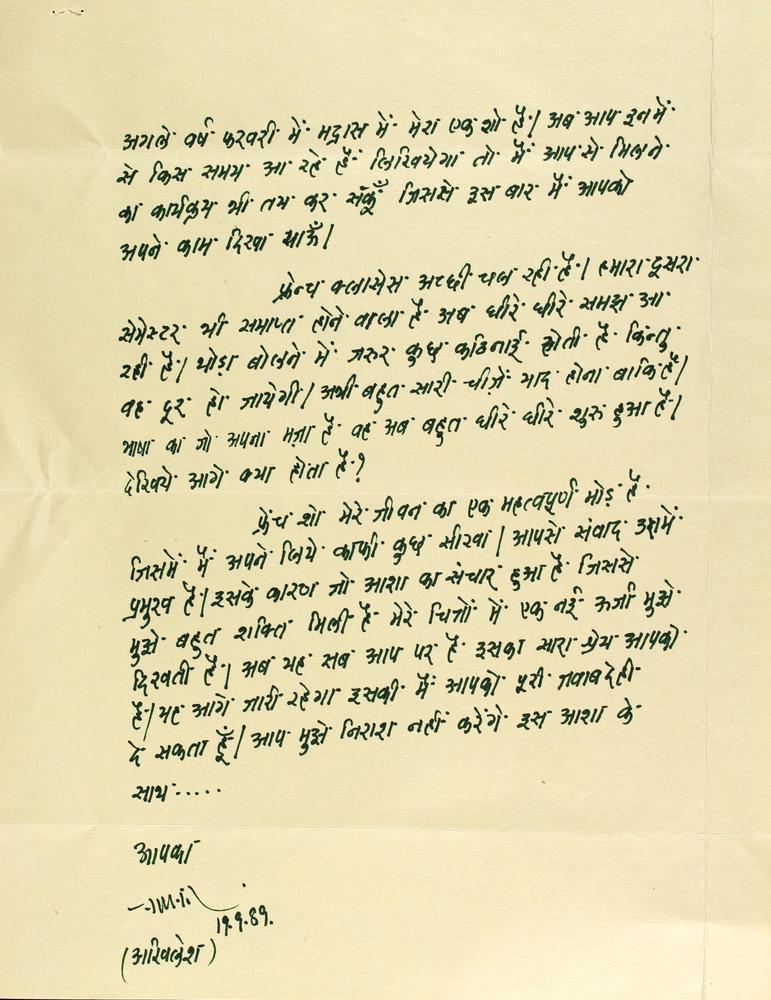 अगले वर्ष फरवरी में मद्रास में मेरा एक शो है। अब आप इनमें
से किस समय आ रहे हैं लिखियेगा तो मैं आपसे मिलने
का कार्यक्रम भी तय कर सकूँ जिससे इस बार मैं आपको
अपने काम दिखा पाऊँ।
फ्रेन्च क्लासेस अच्छी चल रही है। हमारा दूसरा
सेमेस्टर भी समाप्त होने वाला है अब धीरे धीरे समझ आ
रही है। थोड़ा बोलने में जरुर कुछ कठिनाई होती है किन्तु
वह दूर हो जायेगी। अभी बहुत सारी चीज़ें याद होना बाकि है।
भाषा का जो अपना मज़ा है वह अब बहुत धीरे धीरे शुरु हुआ है।
देखिये आगे क्या होता है?
फ्रेंच शो मेरे जीवन का एक महत्वपूर्ण मोड़ है
जिसमें मैं अपने लिये काफी कुछ सीखा। आपसे संवाद उसमें
प्रमुख है। इसके कारण जो आशा का संचार हुआ है जिससे
मुझे बहुत शक्ति मिली है मेरे चित्रों में एक नई ऊर्जा मुझे
दिखती है। अब यह सब आप पर है इसका सारा श्रेय आपको
है। यह आगे जारी रहेगा इसकी मैं आपको पूरी जवाबदेही
दे सकता हूँ। आप मुझे निराश नहीं करेंगे इस आशा के
साथ.....
आपका
19.9.89.
(अखिलेश)